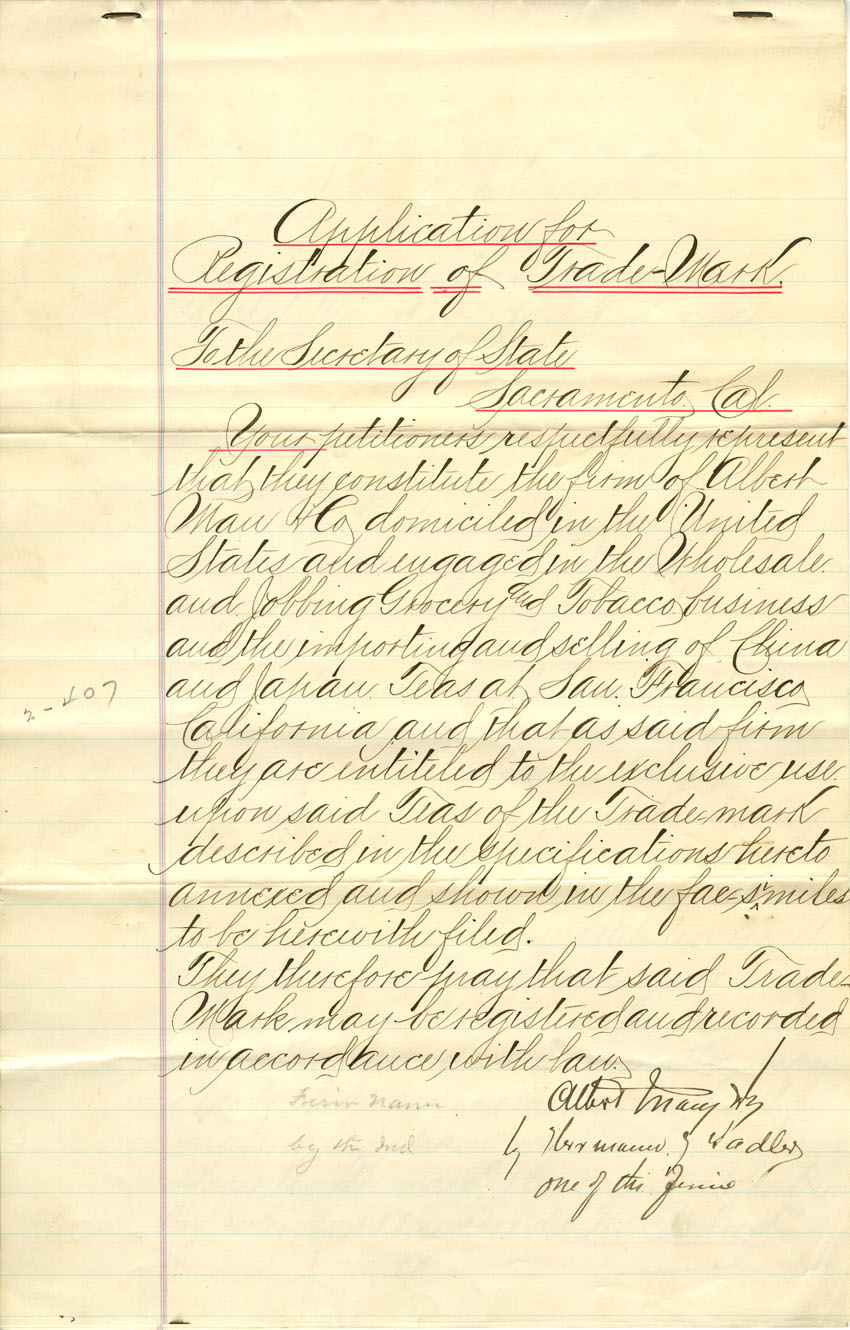 Application for
Registration of Trade-Mark.
To the Secretary of State
Sacramento, Cal.
Your petitioners respectfully represent
that they constitute the firm of Albert
Mau & Co, domiciled in the United
States and engaged in the Wholesale
and Jobbing Grocery and Tobacco business
and the importing and selling of China
and Japan Teas at San Francisco,
California, and that as said firm
they are entiteled to the exclusive use
upon said Teas of the Trade-mark
described in the specifications hereto
annexed and shown in the fac-similes
to be herewith filed.
They therefore pray that said Trade-
Mark may be registered and recorded
in accordance with law.
2-407
Firm name
by the
Albert Mau & Co
by Herrmann Sadler
one of the Firm